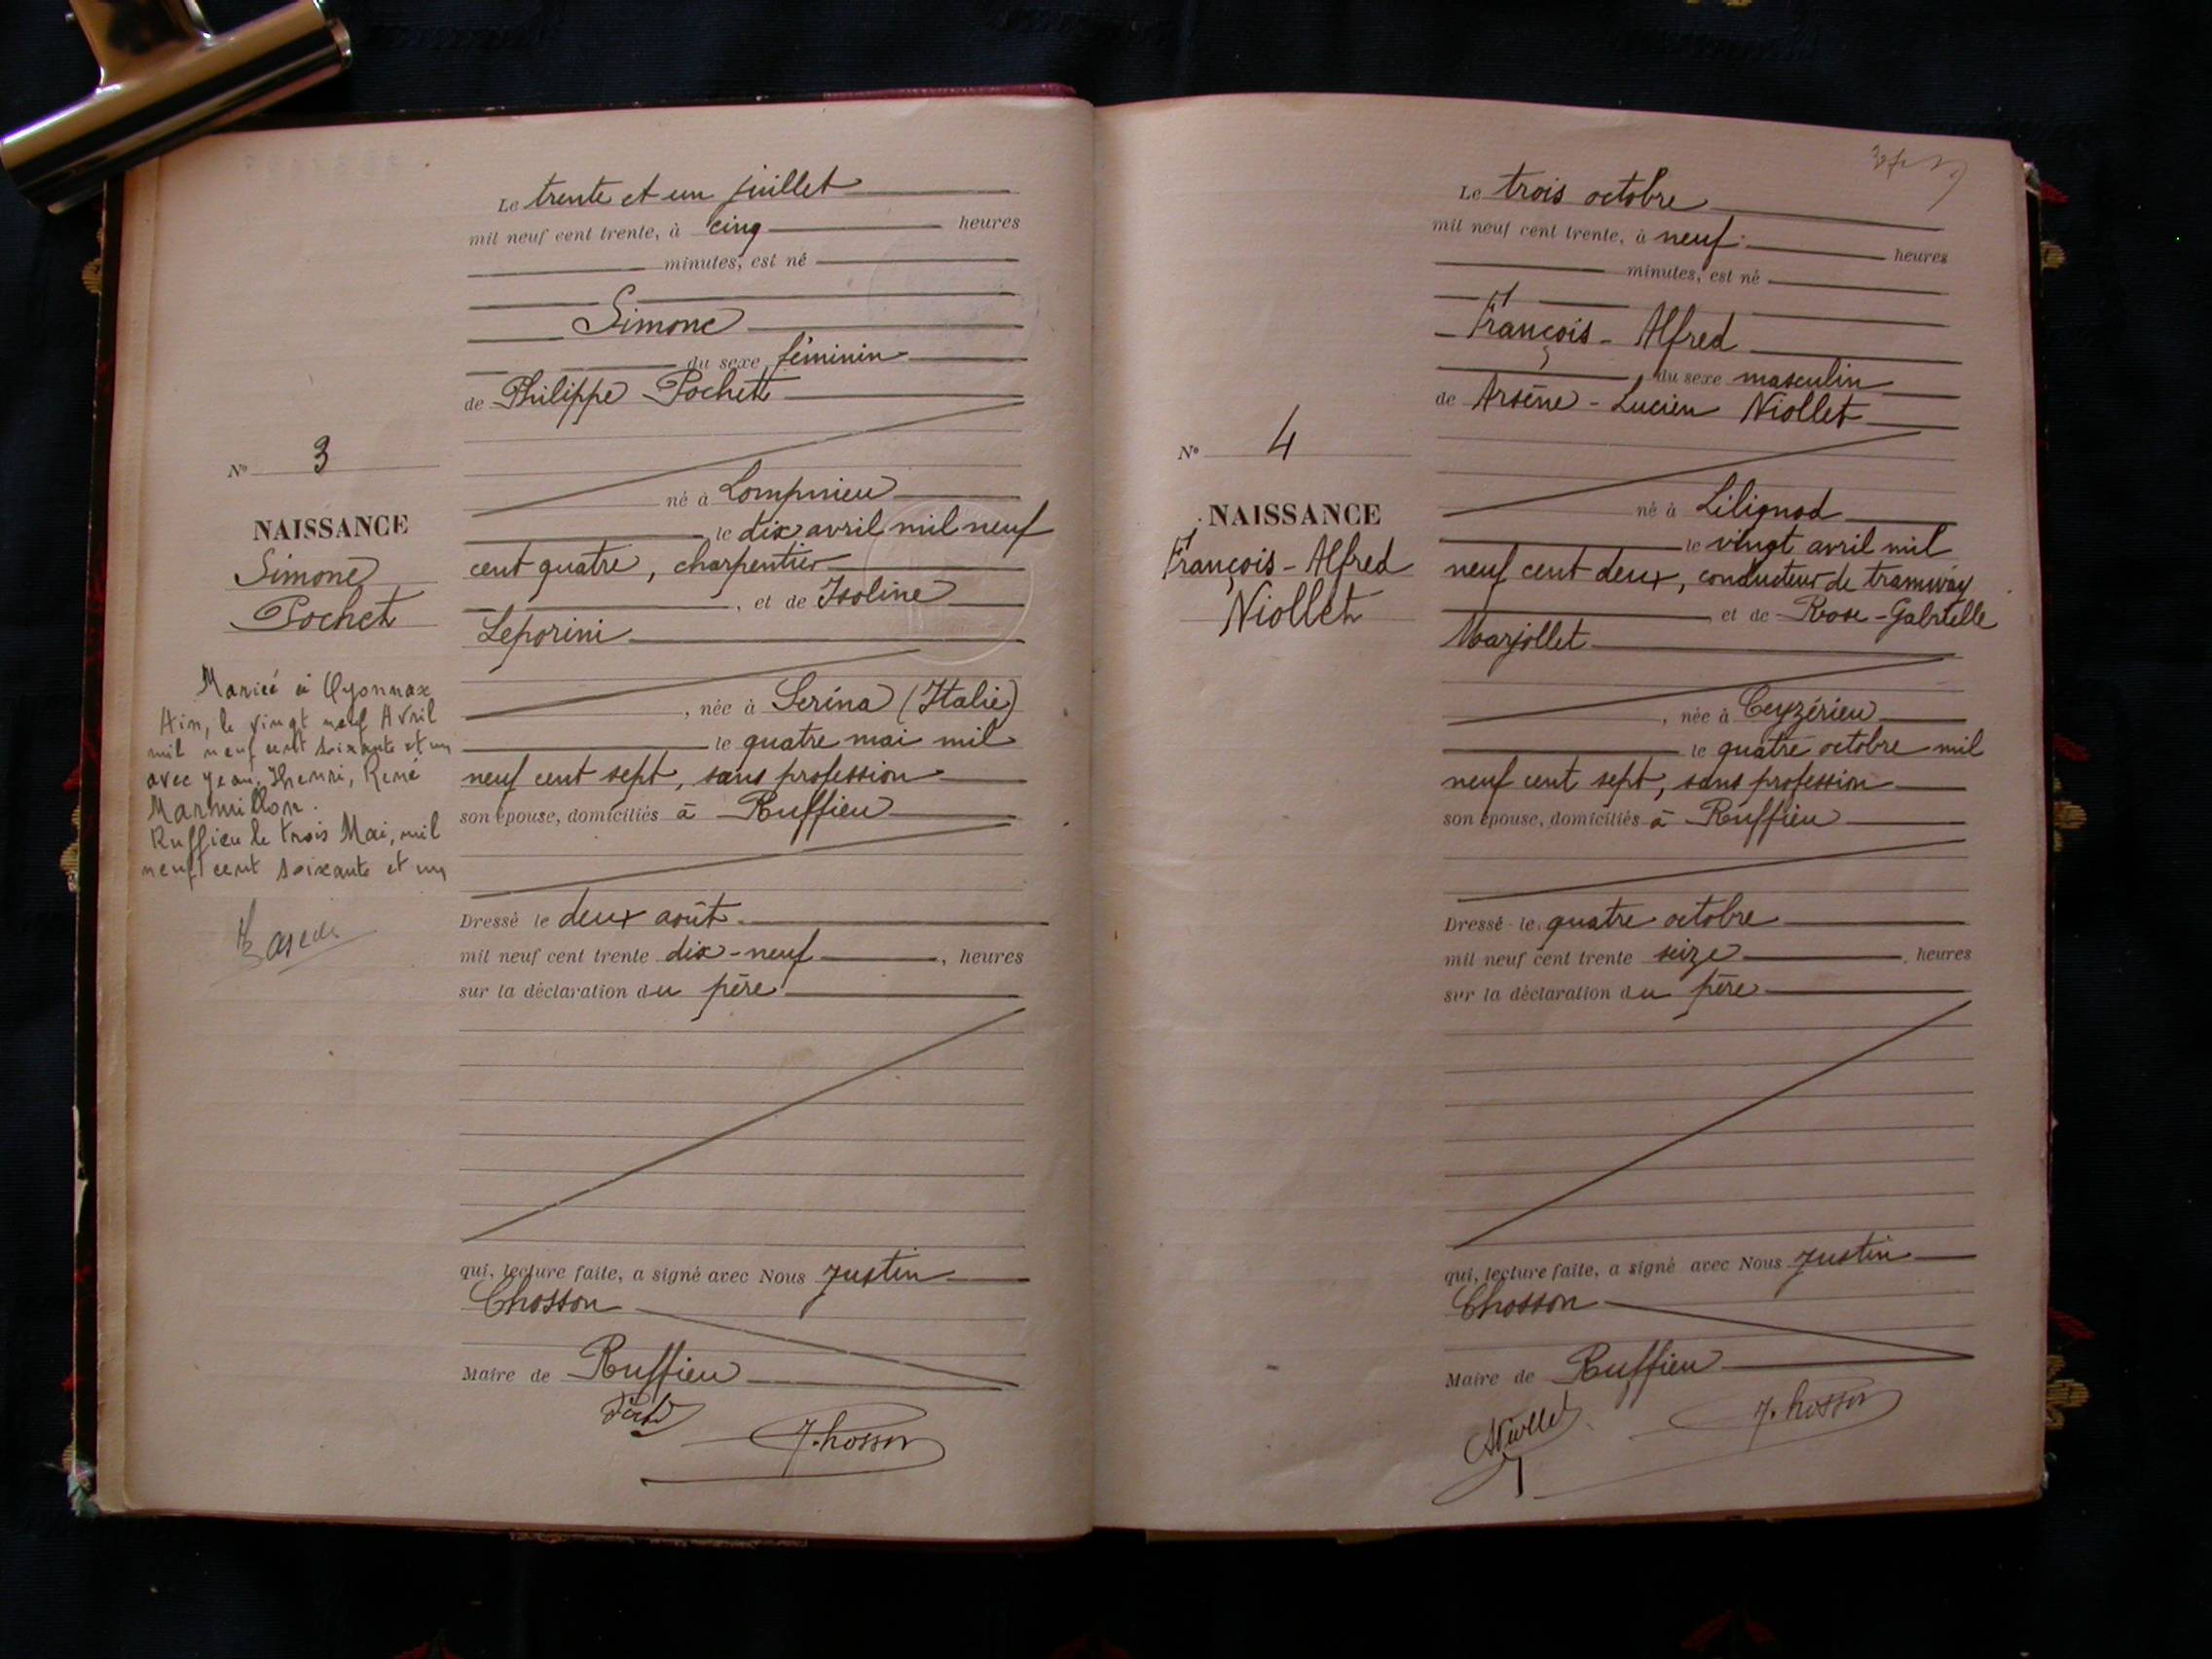 Le trente et un juillet
mil neuf cent trente, à cinq heures
minutes, est né
Simone
du sexe féminin
de Philippe Pochet
né à Lompnieu
le dix avril mil neuf
cent quatre, charpentier
, et de Isoline
Leporini
, née à Serina (Italie)
le quatre mai mil
neuf cent sept, sans profession
son épouse, domiciliés à Ruffieu
Dressé le deux août
mil neuf cent trente dix-neuf, heures
sur la déclaration du père
qui, lecture faite, a signé avec Nous Justin
Chosson
Maire de Ruffieu
J. Chosson
No 3
NAISSANCE
Simone
Pochet
Mariée à Oyonnax
Ain, le vingt neuf Avril
mil neuf cent soixante et un
avec Jean, Henri, René
Marmillon.
Ruffieu le trois Mai, mil
neuf cent soixante et un
Le trois octobre
mil neuf cent trente, à neuf heures
minutes, est né
François-Alfred
du sexe masculin
de Arsène-Lucien Niollet
né à Lilignod
le vingt avril mil
neuf cent deux, conducteur de tramway
et de Rose-Gabrielle
Marjollet
, née à Ceyzérieu
le quatre octobre mil
neuf cent sept, sans profession
son épouse, domiciliés à Ruffieu
Dressé le quatre octobre
mil neuf cent trente seize, heures
sur la déclaration du père
qui, lecture faite, a signé avec Nous Justin
Chosson
Maire de Ruffieu
Niollet
J. Chosson
No 4
NAISSANCE
François-Alfred
Niollet